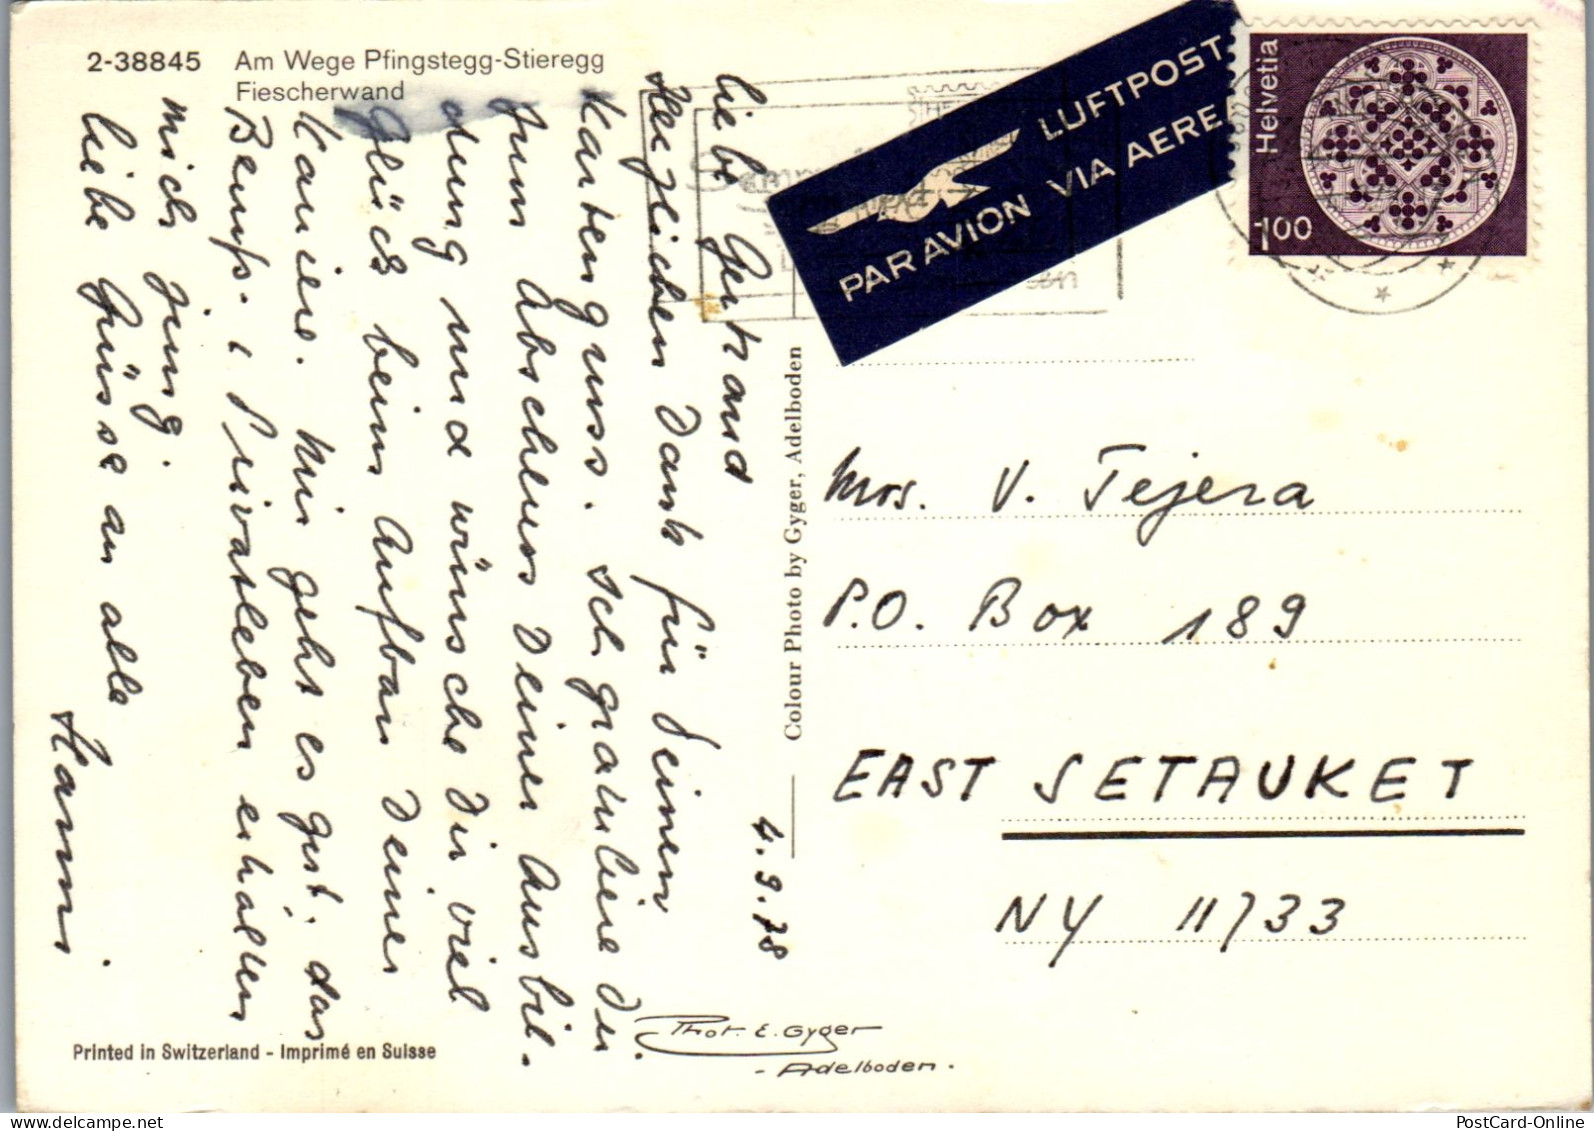 2-38845 Am Wege Pfingstegg-Stieregg
Fiescherwand
Liebe Gertraud
Herzlichen Dank für Deinen
Kartengruss. Ich gratuliere Dir
zum Abschluss Deiner Ausbil-
dung und wünsche Dir viel
Glück beim Aufbau Deiner
Karriere. Mir geht es gut, das
Berufs- & Privatleben erhalten
mich jung.
Liebe Grüsse an alle
Hanni.
4.9.78
Colour Photo by Gyger, Adelboden
LUFTPOST
PAR AVION VIA AEREA
Helvetia
100
Mrs. V. Tejera
P.O. Box 189
EAST SETAUKET
NY 11733
Phot. E. Gyger
- Adelboden.
Printed in Switzerland - Imprimé en Suisse
PostCard-Online